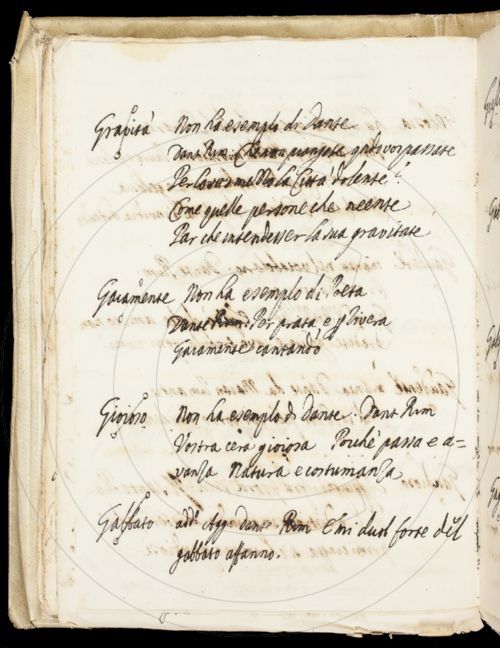 Gravità Non ha esemplo di Dante
Dant Rim. Che non piangete qndo voi passate
Per lo suo mezzo la Città dolente?
Come quelle persone che neente
Par che intendesser la sua gravitate
Gaiamente Non ha esempio di Poeta
Dante Rim. Per prata, e p Rivera
Gaiamente cantando
Gioioso Non ha esemplo di Dante. Dant Rim
Vostra cera gioiosa Poiché passa e a=
vanza Natura e costumanza
Gabbato add. Agg. Dant Rim E mi duol forte del
gabbato affanno.